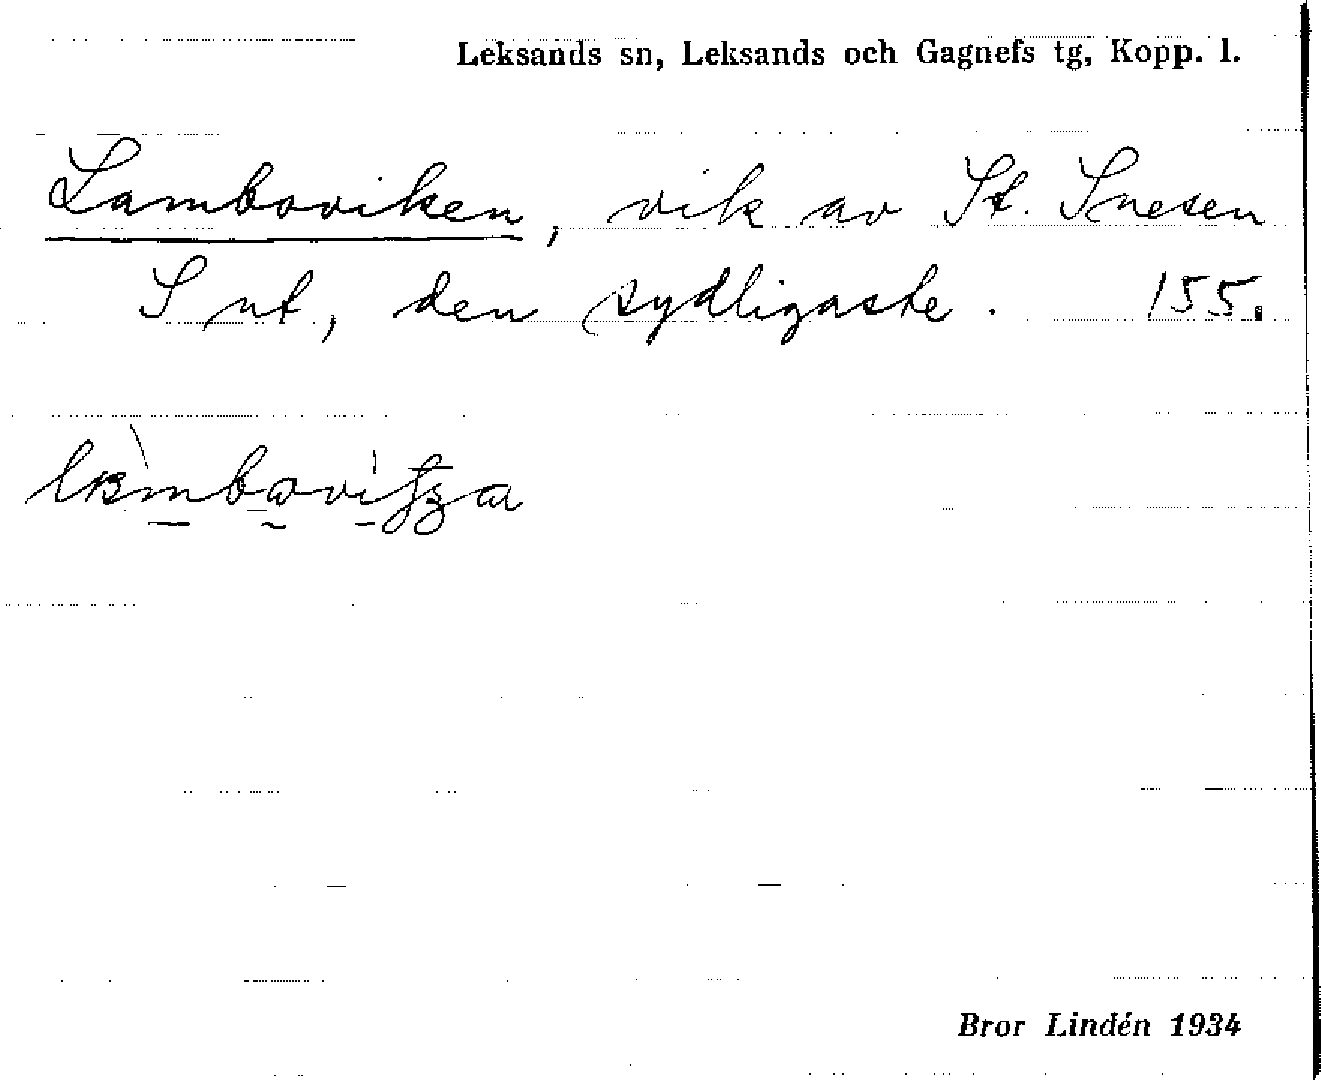 Leksands sn, Leksands och Gagnefs tg, Kopp. l.
Lamboviken, vik av St. Snesen
S ut, den sydligaste. 155.
Bror Lindén 1934